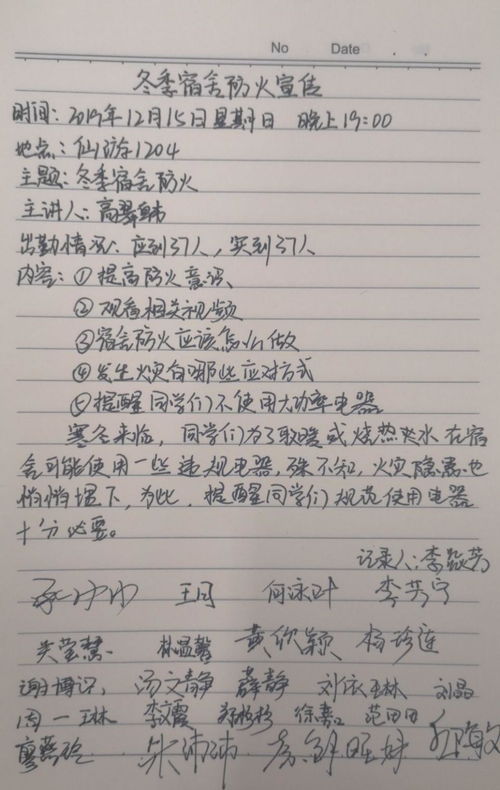 No Date
冬季宿舍防火宣传
时间：2019年12月15日星期日 晚上19:00
地点：仙游1204
主题：冬季宿舍防火
主讲人：高翠韩
出勤情况：应到37人，实到37人
内容：①提高防火意识
②观看相关视频
③宿舍防火应该怎么做
④发生火灾有哪些应对方式
⑤提醒同学们不使用大功率电器
寒冬来临，同学们为了取暖或烧热水在宿
舍可能使用一些违规电器，殊不知，火灾隐患也
悄悄埋下，为此，提醒同学们规范使用电器
十分必要。
记录人：李燚芳
王月 何泳叶 李芳宁
吴莹慧 林温馨 黄欣颖 杨珍莲
谢博识 汤文静 薛静 刘依琳 刘晶
周一琳 李文霞 郑彬彬 徐嘉 范田田
廖燕玲 朱沛沛